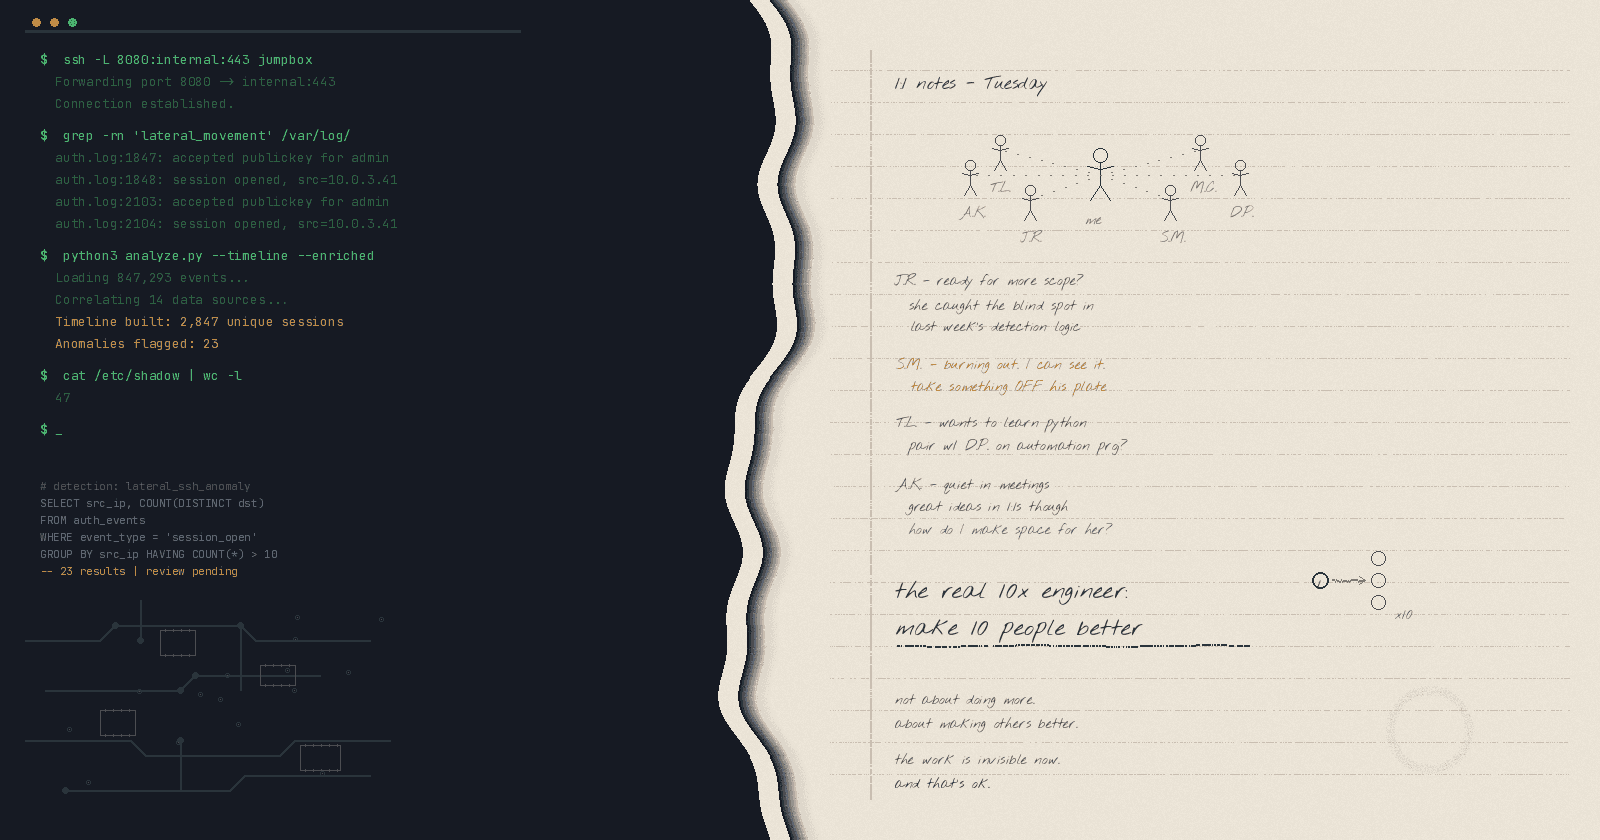 $ ssh -L 8080:internal:443 jumpbox
Forwarding port 8080 → internal:443
Connection established.
$ grep -rn 'lateral_movement' /var/log/
auth.log:1847: accepted publickey for admin
auth.log:1848: session opened, src=10.0.3.41
auth.log:2103: accepted publickey for admin
auth.log:2104: session opened, src=10.0.3.41
$ python3 analyze.py --timeline --enriched
Loading 847,293 events...
Correlating 14 data sources...
Timeline built: 2,847 unique sessions
Anomalies flagged: 23
$ cat /etc/shadow | wc -l
47
$ _
# detection: lateral_ssh_anomaly
SELECT src_ip, COUNT(DISTINCT dst)
FROM auth_events
WHERE event_type = 'session_open'
GROUP BY src_ip HAVING COUNT(*) > 10
-- 23 results | review pending
1:1 notes - Tuesday
T.L.
M.C.
A.K.
me
D.P.
J.R.
S.M.
J.R. - ready for more scope?
she caught the blind spot in
last week's detection logic
S.M. - burning out. I can see it.
take something OFF his plate
T.L. - wants to learn python
pair w/ D.P. on automation prg?
A.K. - quiet in meetings
great ideas in 1:1s though
how do I make space for her?
the real 10x engineer:
make 10 people better
x10
not about doing more.
about making others better.
the work is invisible now.
and that's ok.